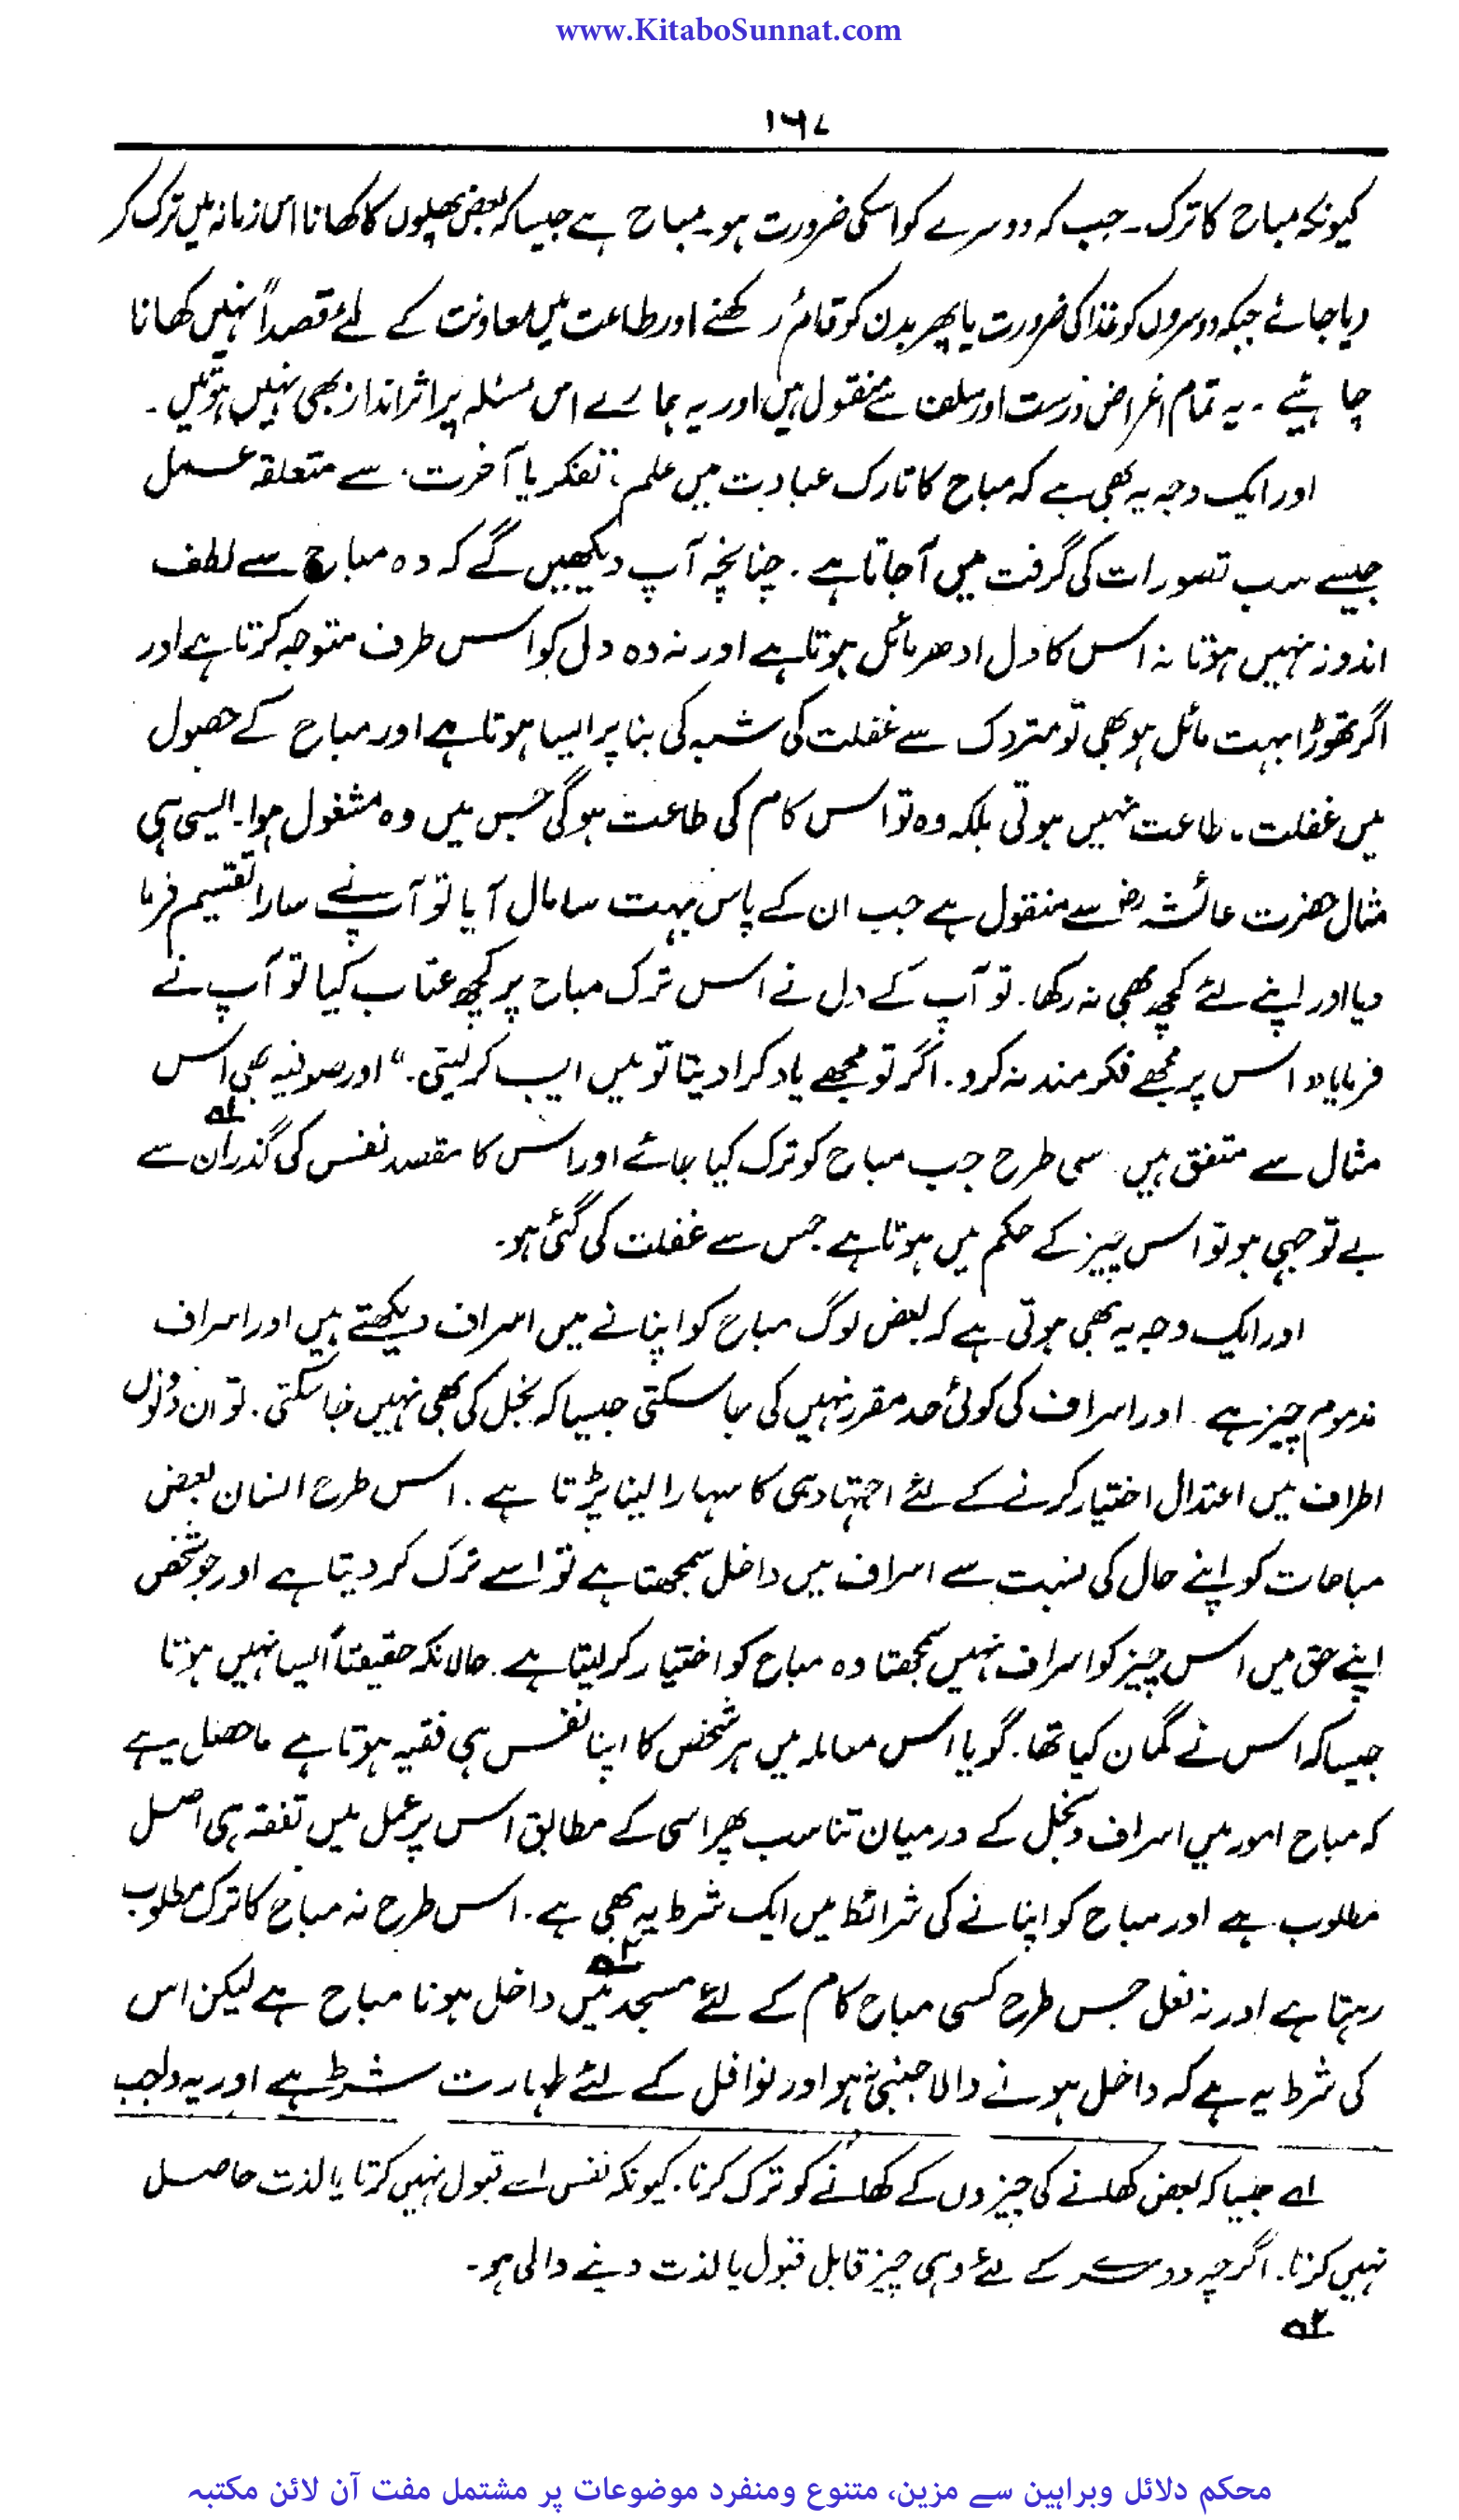 www.KitaboSunnat.com
۱۶۷
کیونکہ مباح کا ترک۔ جب کہ دوسرے کو اسکی ضرورت ہو۔ مباح ہے جیسا کہ بعض پھلوں کا کھانا اس زمانہ میں ترک کر
دیا جائے جبکہ دوسروں کو غذا کی ضرورت یا پھر بدن کو قائم رکھنے اور طاعت میں معاونت کے لئے قصداً نہیں کھانا
چاہئیے ۔ یہ تمام اغراض درست اور سلف سے منقول ہیں اور یہ ہمارے اس مسئلہ پر اثر انداز بھی نہیں ہوتیں ۔
اور ایک وجہ یہ بھی ہے کہ مباح کا تارک عبادت میں علم، تفکر یا آخرت، سے متعلقہ عمل
جیسے سب تصورات کی گرفت میں آجاتا ہے ۔ چنانچہ آپ دیکھیں گے کہ وہ مباح سے لطف
اندوز نہیں ہوتا نہ اس کا دل ادھر مائل ہوتا ہے اور نہ وہ دل کو اس طرف متوجہ کرتا ہے اور
اگر تھوڑا بہت مائل ہو بھی تو متروک سے غفلت کی شبہ کی بنا پر ایسا ہوتا ہے اور مباح کے حصول
میں غفلت، طاعت نہیں ہوتی بلکہ وہ تو اس کام کی طاعت ہوگی جس میں وہ مشغول ہوا۔ ایسی ہی
مثال حضرت عائشہ رض سے منقول ہے جب ان کے پاس بہت سا مال آیا تو آپ نے سارا تقسیم فرما
دیا اور اپنے لئے کچھ بھی نہ رکھا۔ تو آپ کے دل نے اس ترک مباح پر کچھ عتاب کیا تو آپ نے
فرمایا "اس پر مجھے فکر مند نہ کرو۔ اگر تو مجھے یاد کرا دیتا تو میں ایسا کر لیتی۔" اور صوفیہ بھی اس
مثال سے متفق ہیں۔ اسی طرح جب مباح کو ترک کیا جائے اور اس کا مقصد نفس کی گذران سے ۱ے
بے توجہی ہو تو اس چیز کے حکم میں ہوتا ہے جس سے غفلت کی گئی ہو۔
اور ایک وجہ یہ بھی ہوتی ہے کہ بعض لوگ مباح کو اپنانے میں اسراف دیکھتے ہیں اور اسراف
مذموم چیز ہے ۔ اور اسراف کی کوئی حد مقرر نہیں کی جا سکتی جیسا کہ بخل کی بھی نہیں کی جا سکتی ۔ تو ان دونوں
اطراف میں اعتدال اختیار کرنے کے لئے اجتہاد ہی کا سہارا لینا پڑتا ہے ۔ اس طرح انسان بعض
مباحات کو اپنے حال کی نسبت سے اسراف میں داخل سمجھتا ہے تو اسے ترک کر دیتا ہے اور جو شخص
اپنے حق میں اس چیز کو اسراف نہیں سمجھتا وہ مباح کو اختیار کر لیتا ہے ۔ حالانکہ حقیقتاً ایسا نہیں ہوتا
جیسا کہ اس نے گمان کیا تھا۔ گویا اس معاملہ میں ہر شخص کا اپنا نفس ہی فقیہ ہوتا ہے ماحصل یہ ہے
کہ مباح امور میں اسراف و بخل کے درمیان تناسب پھر اسی کے مطابق اس پر عمل میں تفقہ ہی اصل
مطلوب ہے اور مباح کو اپنانے کی شرائط میں ایک شرط یہ بھی ہے ۔ اس طرح نہ مباح کا ترک مطلوب
رہتا ہے اور نہ نفل جس طرح کسی مباح کام کے لئے مسجد ۲ے میں داخل ہونا مباح ہے لیکن اس
کی شرط یہ ہے کہ داخل ہونے والا جنبی نہ ہو اور نوافل کے لئے طہارت شرط ہے اور یہ واجب
۱ے جیسا کہ بعض کھانے کی چیزوں کے کھانے کو ترک کرنا۔ کیونکہ نفس اسے قبول نہیں کرتا یا لذت حاصل
نہیں کرتا۔ اگرچہ دوسرے کے لئے وہی چیز قابل قبول یا لذت دینے والی ہو۔
۲ے
محکم دلائل وبراہین سے مزین، متنوع ومنفرد موضوعات پر مشتمل مفت آن لائن مکتبہ